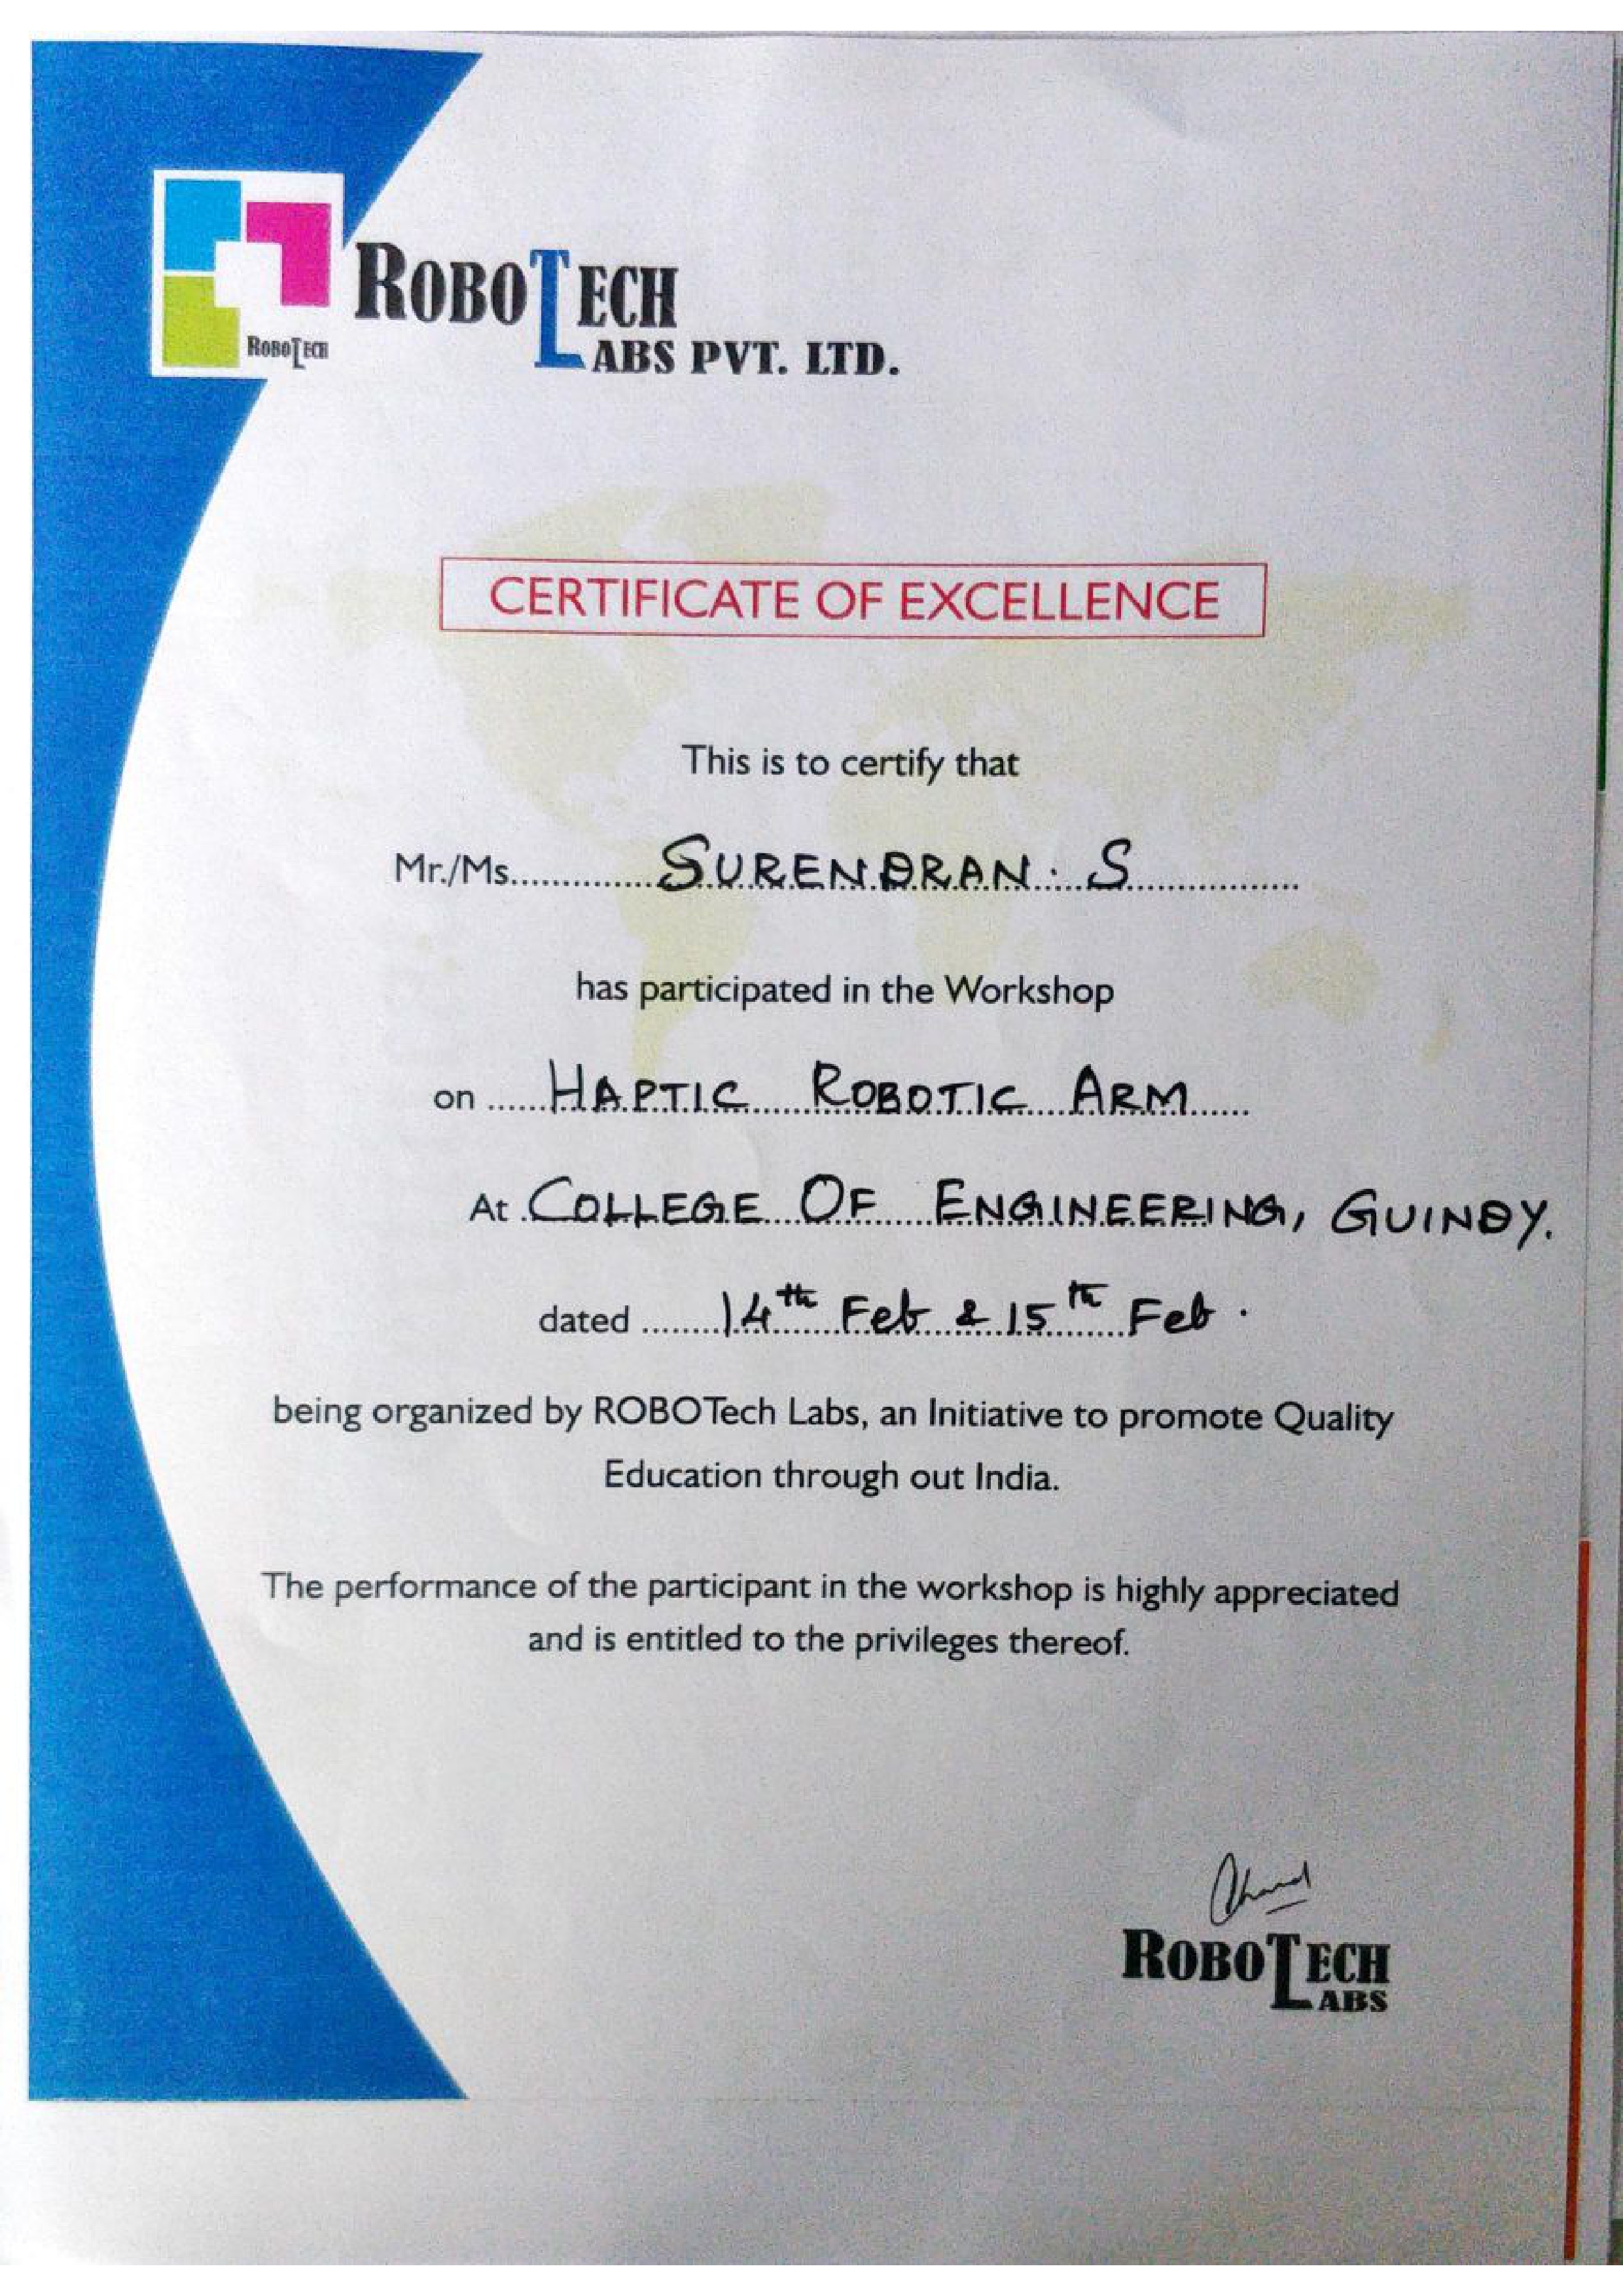 ROBOTECH
ROBOTECH
LABS PVT. LTD.
CERTIFICATE OF EXCELLENCE
This is to certify that
Mr./Ms. SURENDRAN. S
has participated in the Workshop
on HAPTIC ROBOTIC ARM
At COLLEGE OF ENGINEERING, GUINDY.
dated 14th Feb & 15th Feb.
being organized by ROBOTech Labs, an Initiative to promote Quality
Education through out India.
The performance of the participant in the workshop is highly appreciated
and is entitled to the privileges thereof.
ROBOTECH
LABS